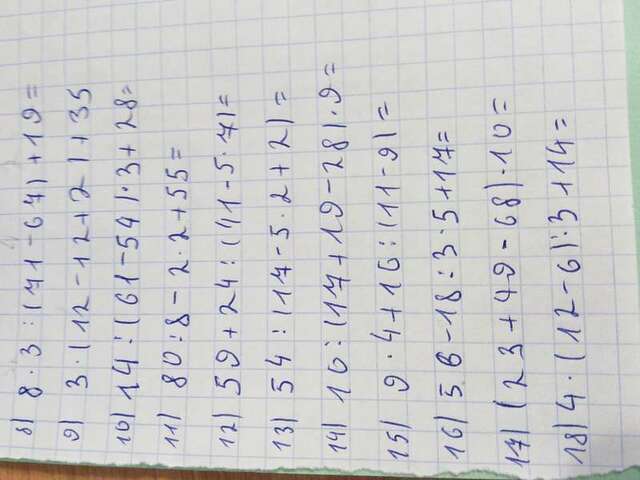 8) 8·3:(71-67)+19=
9) 3·(12-12+2)+35
10) 14:(61-54)·3+28=
11) 80:8-2·2+55=
12) 59+24:(41-5·7)=
13) 54:(17-5·2+2)=
14) 16:(17+19-28)·9=
15) 9·4+16:(11-9)=
16) 56-18:3·5+17=
17) (23+49-68)·10=
18) 4·(12-6):3+14=